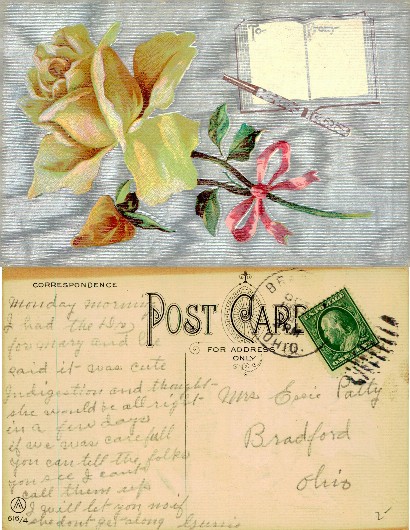 To
From
CORRESPONDENCE
POST CARD
FOR ADDRESS
ONLY
OHIO.
Monday morning
I had the Dr
for Mary and he
said it was cute
Indigestion and thought
she would be all right
in a few days
if we was carefull
you can tell the folks
you see I cant
call them up
I will let you no if
she dont get along
Mrs Essie Patty
Bradford
Ohio
A
616/4
2